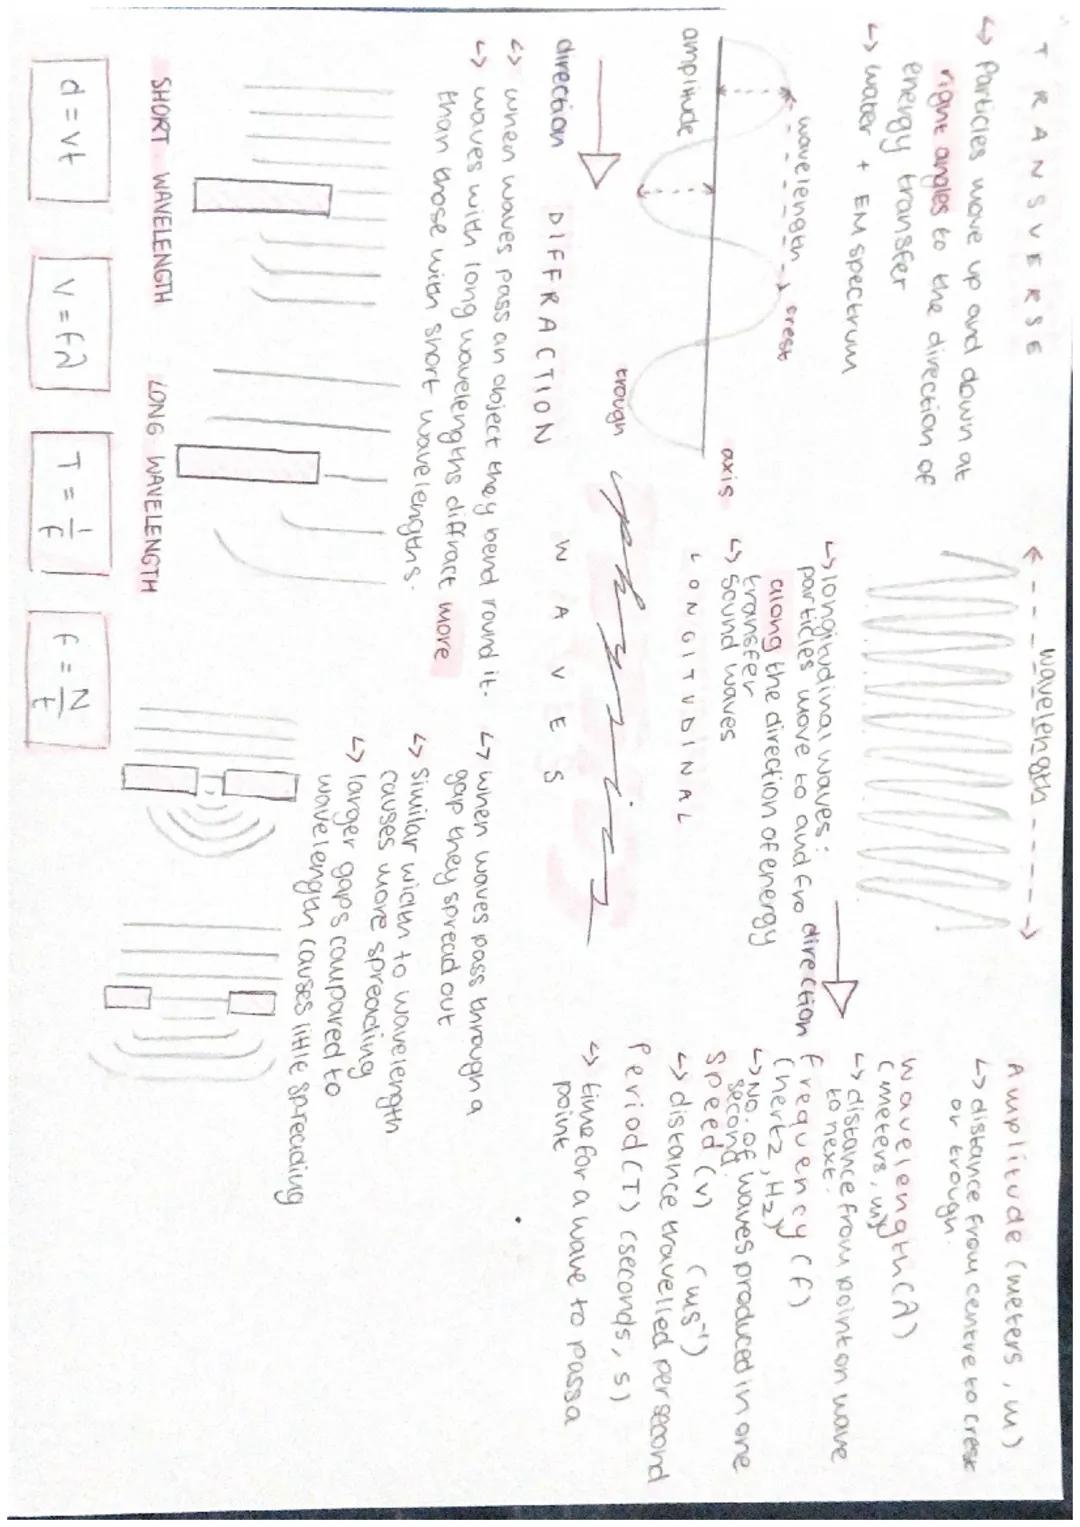 TRANSVERSE
↳ Particles move up and down at
right angles to the direction of
energy transfer
↳ water + EM spectrum
wavelength
crest
amplitude
axis
trough
direction
wavelength
↳ longitudinal waves:
particles move to and fro
along the direction of energy
transfer
↳ sound waves
direction
LONGITUDINAL
WAVES
Amplitude (meters, m)
↳ distance from centre to crest
or trough.
wavelength (λ)
(meters, m)
↳ distance from point on wave
to next.
frequency (f)
(hertz, Hz)
↳ No. of waves produced in one
second.
Speed (v) (ms⁻¹)
↳ distance travelled per second
Period (T) (seconds, s)
↳ time for a wave to pass a
point
DIFFRACTION
↳ when waves pass an object they bend round it.
↳ waves with long wavelengths diffract more
than those with short wavelengths.
SHORT WAVELENGTH
LONG WAVELENGTH
↳ when waves pass through a
gap they spread out
↳ similar width to wavelength
causes more spreading
↳ larger gaps compared to
wavelength causes little spreading
d = vt
v = fλ
T = 1/f
f = N/t